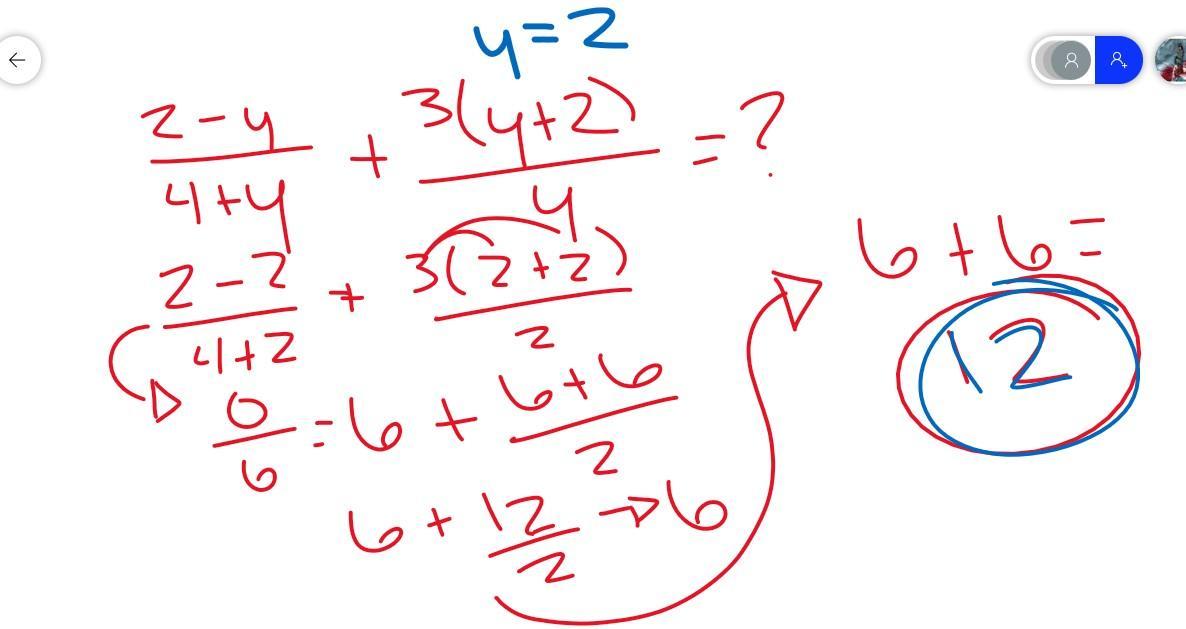 y=2
2-y/4+y + 3(y+2)/y = ?
2-2/4+2 + 3(2+2)/2
0/6 = 6 + 6+6/2
6 + 12/2 → 6
6+6=
12